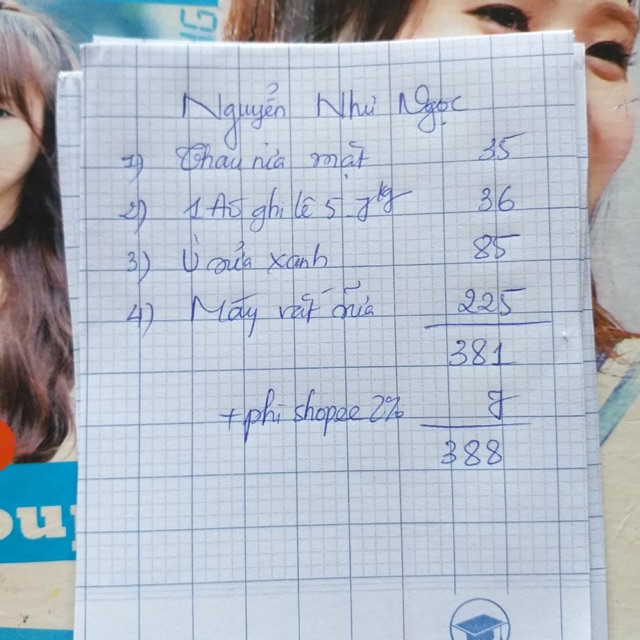 NG
Nguyễn Như Ngọc
1) Thau rửa mặt 35
2) 1 Áo ghi lê 5-7kg 36
3) Ủ sữa xanh 85
4) Máy vắt sữa 225
381
+ phí shopee 2% 7
388
oup